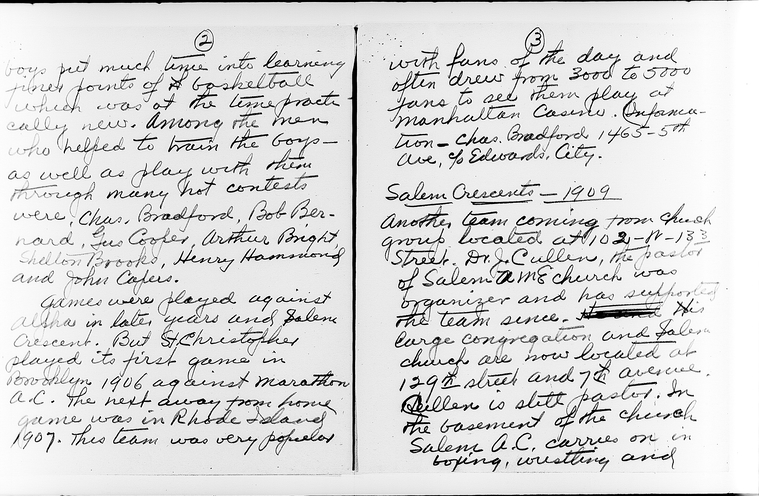 2
boys put much time into learning
finer points of basketball
which was at the time practi-
cally new. Among the men
who helped to train the boys—
as well as play with them
through many hot contests
were, Chas. Bradford, Bob Ber-
nard, Gus Cooper, Arthur Bright
Shelton Brooks, Henry Hammond
and John Capers.
Games were played against
Alpha in later years and Salem
Crescent. But St. Christopher
played its first game in
Brooklyn 1906 against Marathon
A.C. The next away from home
game was in Rhode Island
1907. This team was very popular
3
with fans of the day and
often drew from 3000 to 5000
fans to see them play at
Manhattan Casino. (Informa-
tion - Chas. Bradford 1465-5th
Ave, c/o Edwards, City.
Salem Crescents — 1909
Another team coming from church
group located at 102-W-133
Street. Dr. J. Cullen, the pastor
of Salem A M E church was
organizer and has supported
the team since. His
large congregation and Salem
church are now located at
129th street and 7th avenue.
Cullen is still pastor. In
the basement of the church
Salem A.C. carries on in
boxing, wrestling and